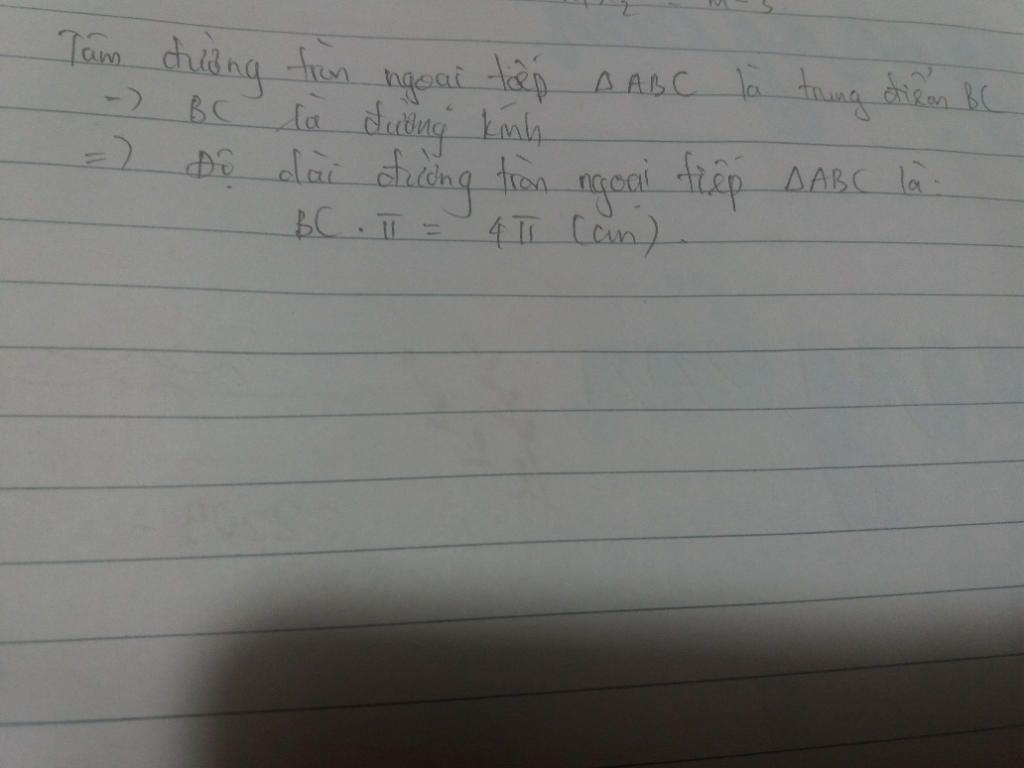 Tâm đường tròn ngoại tiếp ΔABC là trung điểm BC
-> BC là đường kính
=> Độ dài đường tròn ngoại tiếp ΔABC là:
BC . π = 4π (cm).